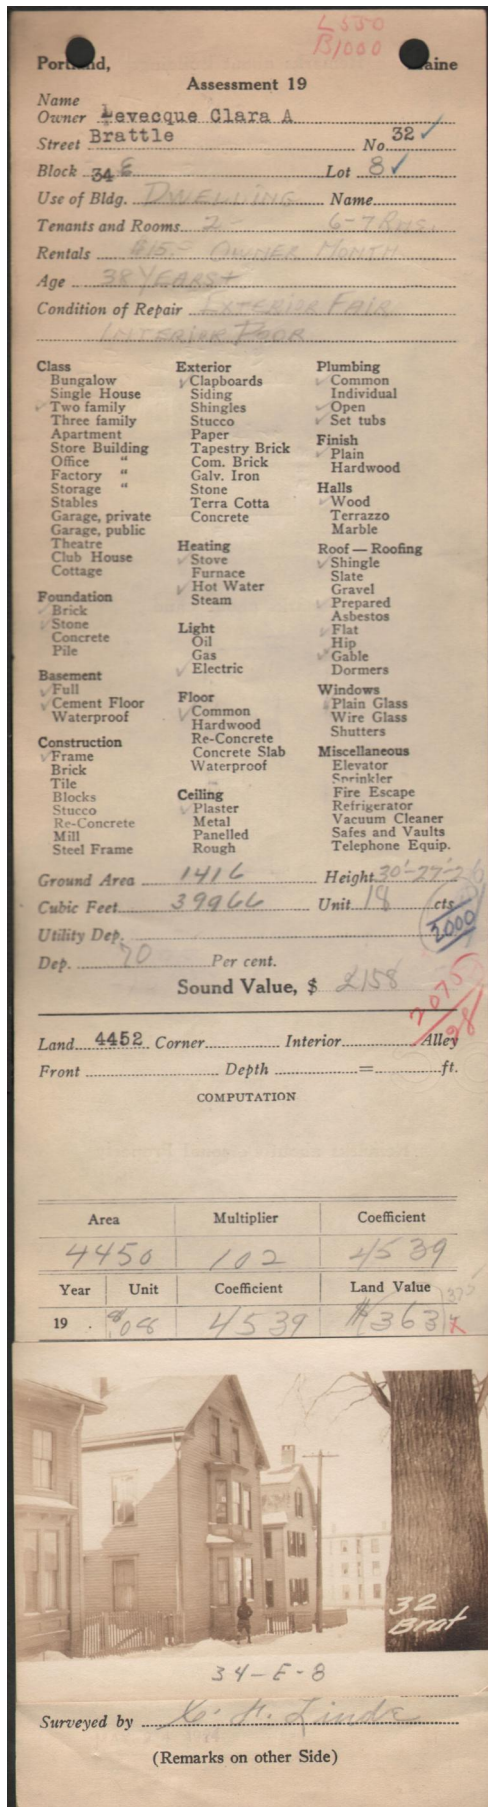 L 550
B 1000
Portland, Maine
Assessment 19
Name
Owner Levecque Clara A
Street Brattle No. 32 ✓
Block 34 E Lot 8 ✓
Use of Bldg. DWELLING Name
Tenants and Rooms 2- 6-7 RMS.
Rentals $15.- OWNER MONTH
Age 38 YEARS+
Condition of Repair EXTERIOR FAIR
INTERIOR POOR
Class
Bungalow
Single House
✓ Two family
Three family
Apartment
Store Building
Office "
Factory "
Storage "
Stables
Garage, private
Garage, public
Theatre
Club House
Cottage
Foundation
✓ Brick
✓ Stone
Concrete
Pile
Basement
✓ Full
✓ Cement Floor
Waterproof
Construction
✓ Frame
Brick
Tile
Blocks
Stucco
Re-Concrete
Mill
Steel Frame
Exterior
✓ Clapboards
Siding
Shingles
Stucco
Paper
Tapestry Brick
Com. Brick
Galv. Iron
Stone
Terra Cotta
Concrete
Heating
✓ Stove
Furnace
✓ Hot Water
Steam
Light
Oil
Gas
✓ Electric
Floor
✓ Common
Hardwood
Re-Concrete
Concrete Slab
Waterproof
Ceiling
✓ Plaster
Metal
Panelled
Rough
Plumbing
✓ Common
Individual
✓ Open
✓ Set tubs
Finish
✓ Plain
Hardwood
Halls
✓ Wood
Terrazzo
Marble
Roof — Roofing
✓ Shingle
Slate
Gravel
✓ Prepared
Asbestos
✓ Flat
Hip
✓ Gable
Dormers
Windows
✓ Plain Glass
Wire Glass
Shutters
Miscellaneous
Elevator
Sprinkler
Fire Escape
Refrigerator
Vacuum Cleaner
Safes and Vaults
Telephone Equip.
Ground Area 1416 Height 30'-27'-26
Cubic Feet 39966 Unit 18 cts.
2000
Utility Dep.
Dep. 70 Per cent.
Sound Value, $ 2158
2075
98
Land 4452 Corner Interior Alley
Front Depth = ft.
COMPUTATION
Area Multiplier Coefficient
4450 102 4539
Year Unit Coefficient Land Value
19 . 08 4539 $363
32
Brat
34-E-8
Surveyed by
(Remarks on other Side)